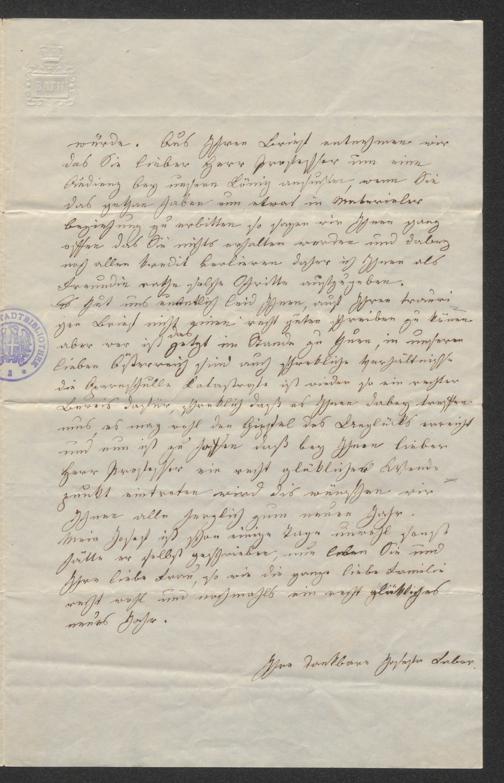 BATH
STADTBIBLIOTHEK
würde. Aus Ihren Brief entnehmen wir
das Sie lieber Herr Professor um eine
Audienz bey unseren König ansuchen, wenn Sie
das gethan haben um etwas in Materieler
beziehung zu erbitten so sagen wir Ihnen ganz
offen das Sie nichts erhalten werden und dabey
noch allen Kredit verlieren daher ich Ihnen als
Freundin rathe solche Schritte aufzugeben.
Es thut uns leid Ihnen, auf Ihren trauri
gen Brief nicht einen recht guten schreiben zu können
aber wer ist das jetzt im Stande zu thuen, in unseren
lieben Österreich sind auch schreckliche Verhältnisse
die Katastrofe ist wieder so ein rechter
Beweis dafür, schrecklich daß es Ihnen dabey treffen
muß, es mag wohl den Gipfel des Unglücks erreicht
und nun ist zu hoffen daß bey Ihnen lieber
Herr Professor ein recht glücklicher Wende
punkt eintreten wird dis wünschen wir
Ihnen alle herzlich zum neuen Jahr.
Mein Josef ist schon einige Tage unwohl sonst
hätte er selbst geschrieben, nun leben Sie und
Ihre liebe Frau, so wie die ganze liebe Familie
recht wohl und nochmahls ein recht glückliches
neues Jahr.
Ihre dankbare Josefa